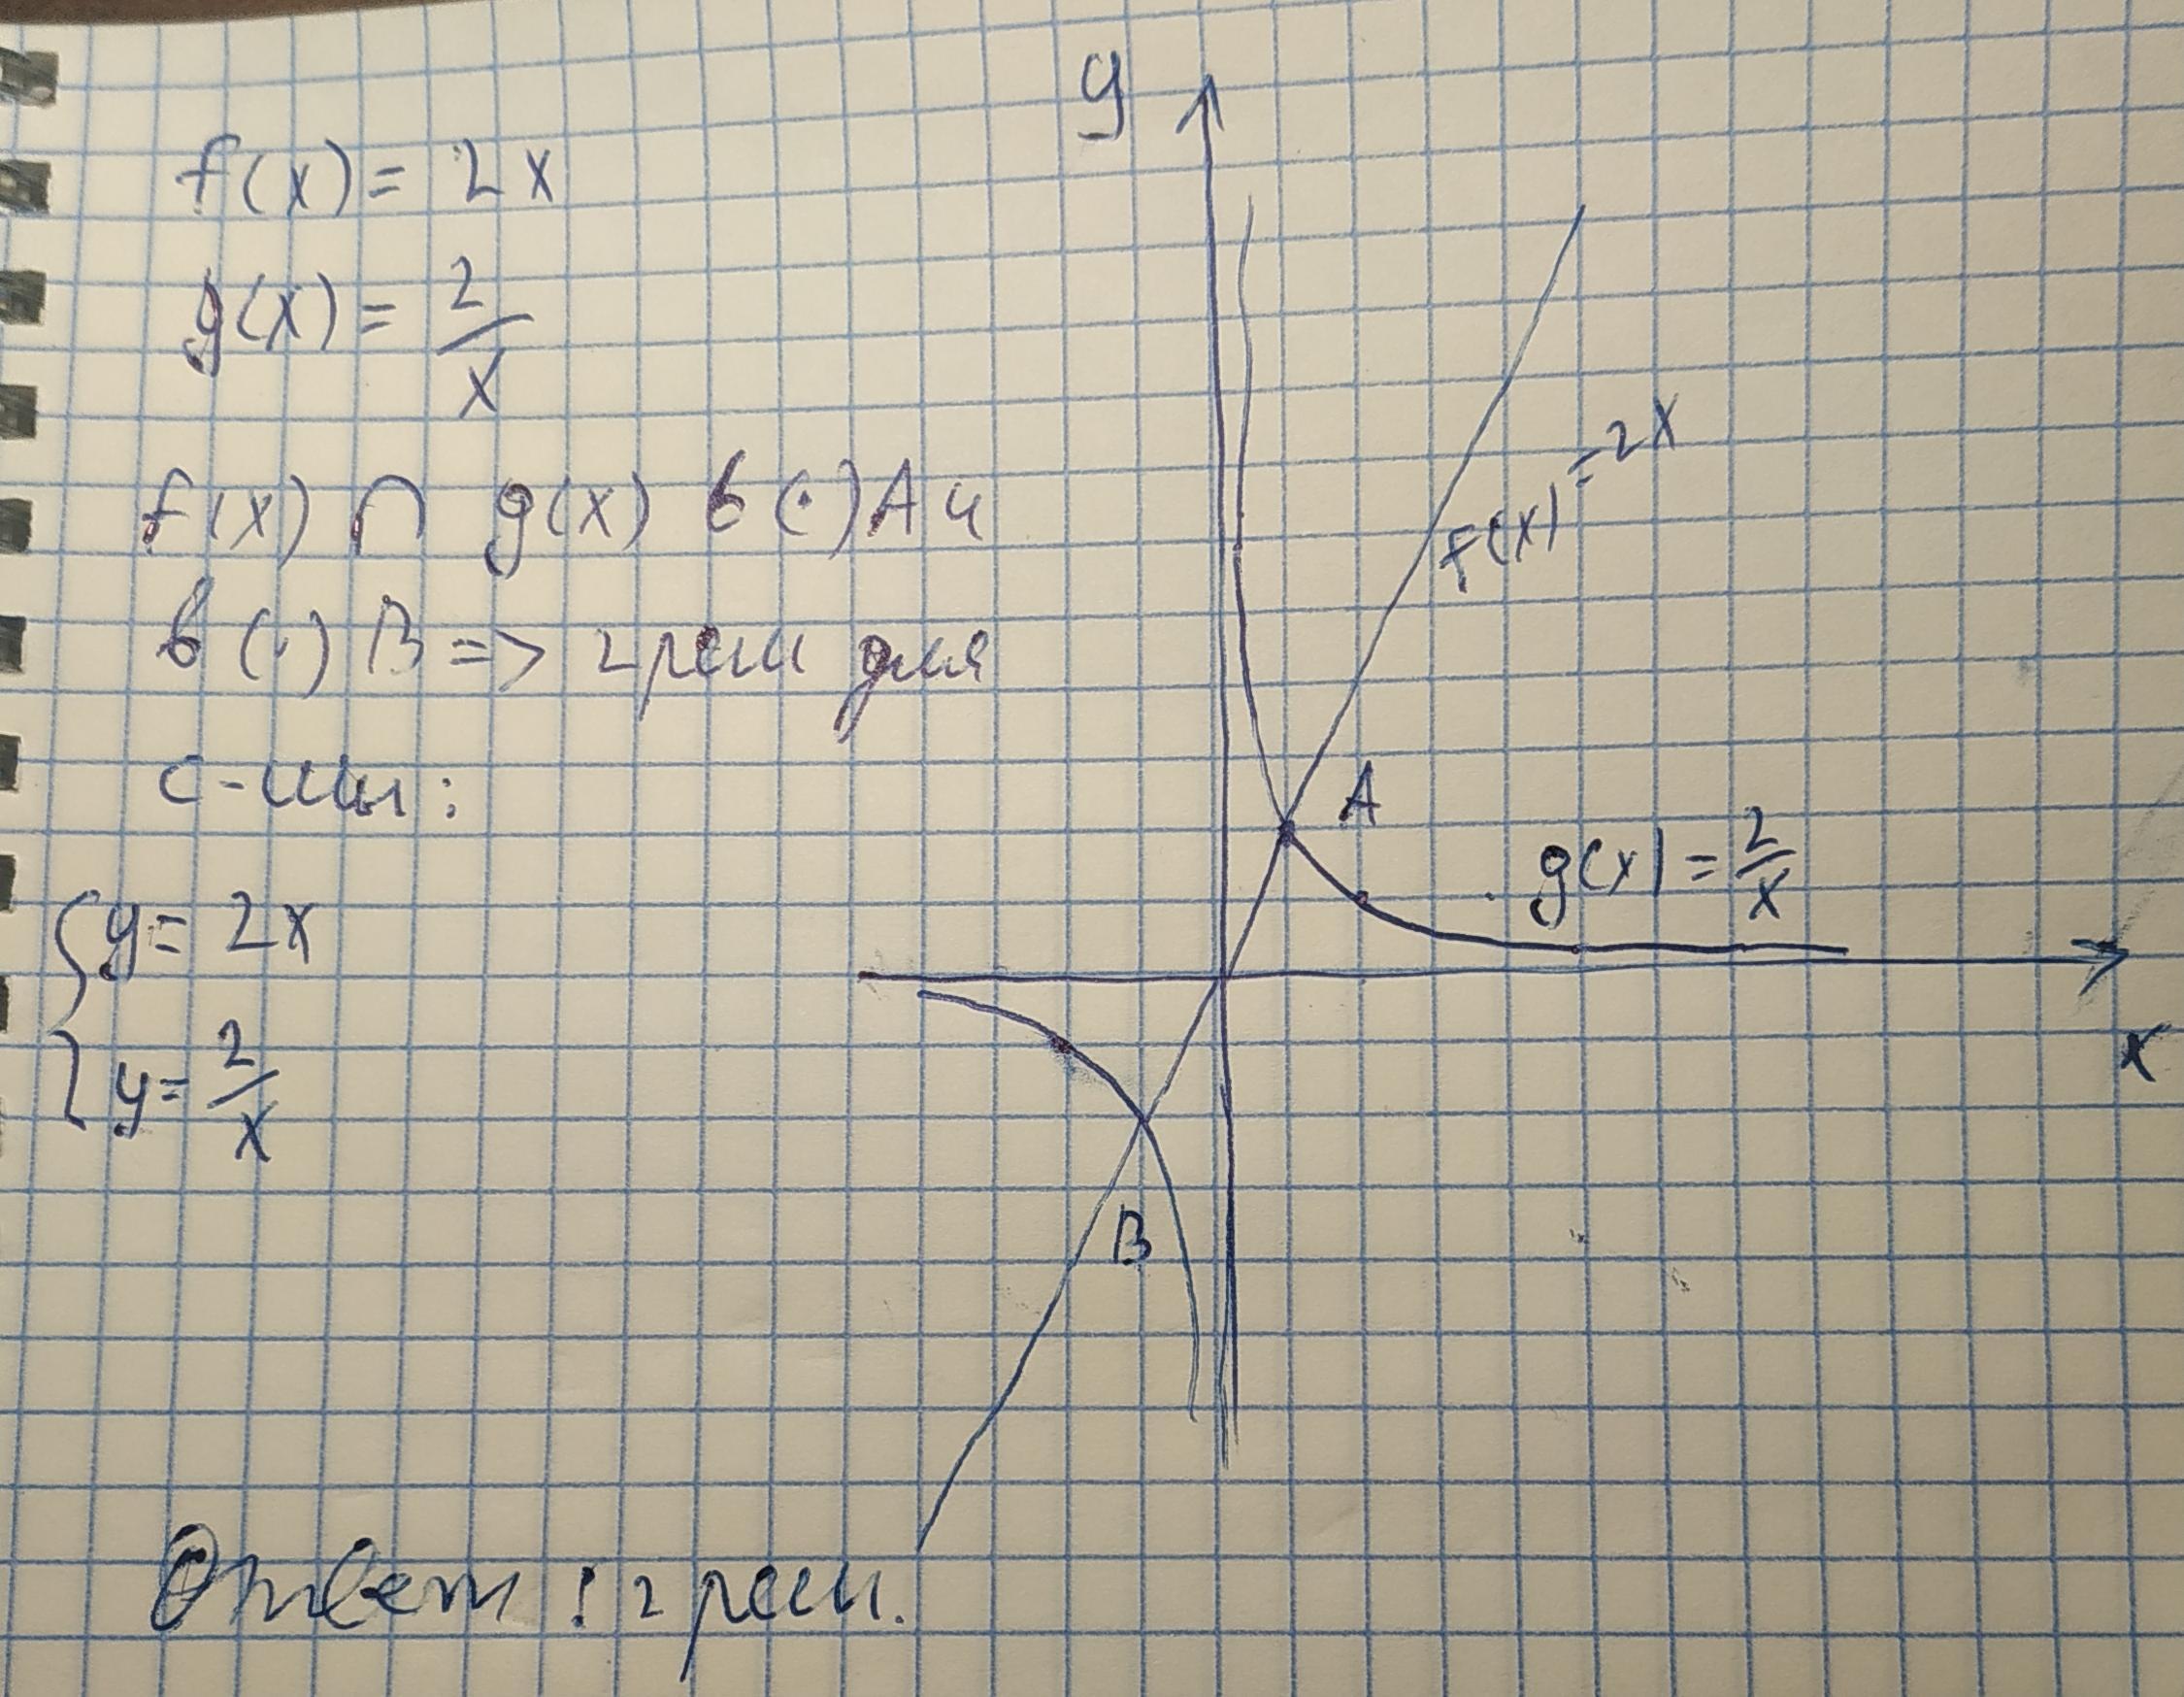 f(x) = 2x
g(x) = 2/x
f(x) ∩ g(x) в (·) A и
в (·) B => 2 реш для
с-мы:
{ y = 2x
y = 2/x
Ответ : 2 реш.
y
f(x) = 2x
A
g(x) = 2/x
x
B